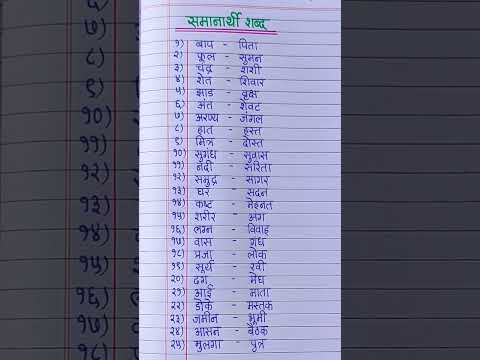 समानार्थी शब्द
१) बाप - पिता
२) फूल - सुमन
३) चंद्र - शशी
४) शेत - शिवार
५) झाड - वृक्ष
६) अंत - शेवट
७) अरण्य - जंगल
८) हात - हस्त
९) मित्र - दोस्त
१०) सुगंध - सुवास
११) नदी - सरिता
१२) समुद्र - सागर
१३) घर - सदन
१४) कष्ट - मेहनत
१५) शरीर - अंग
१६) लग्न - विवाह
१७) वास - गंध
१८) प्रजा - लोक
१९) सूर्य - रवी
२०) ढग - मेघ
२१) आई - माता
२२) डोके - मस्तक
२३) जमीन - भूमी
२४) आसन - बैठक
२५) मुलगा - पुत्र